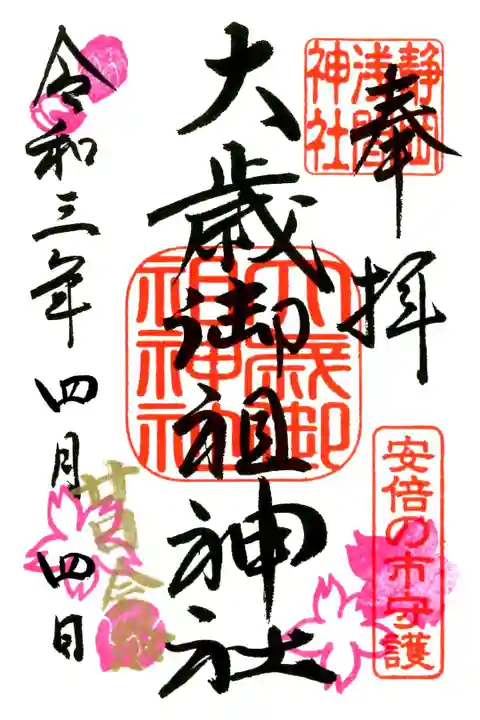 奉拝
静岡
浅間
神社
安倍の市守護
大歳御祖神社
大歳御
祖神社
令和三年四月四日